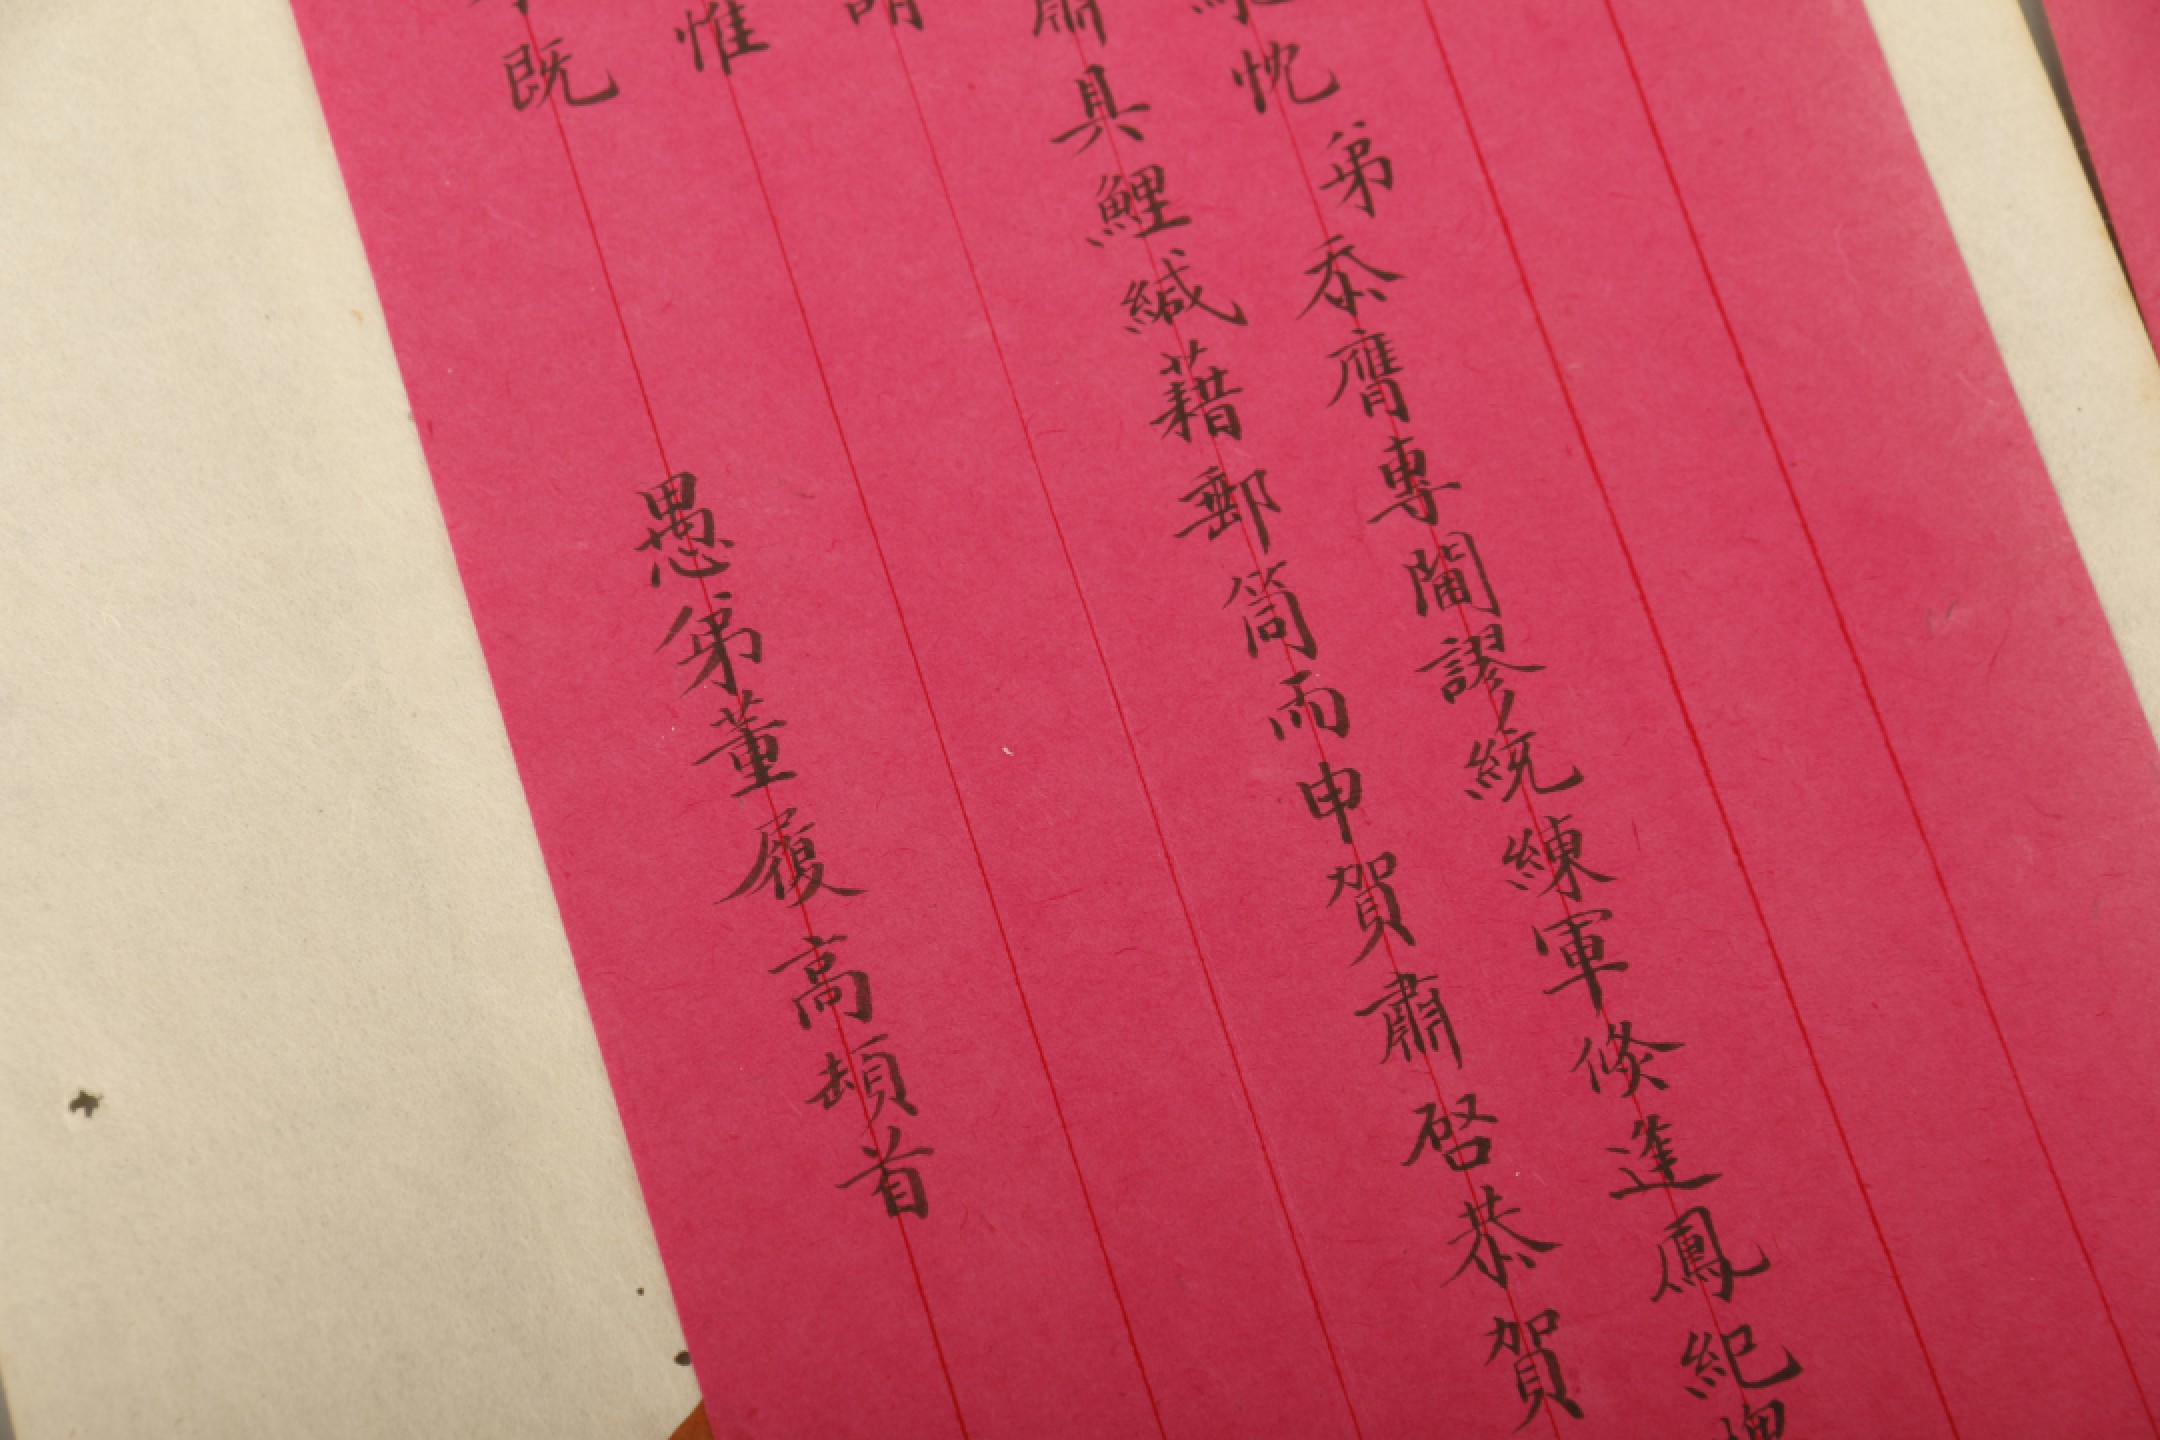 忱弟忝膺專閫謬統練軍倏逢鳳紀
肅具鯉緘藉郵筒而申賀肅啓恭賀
惟
既
愚弟董履高頓首